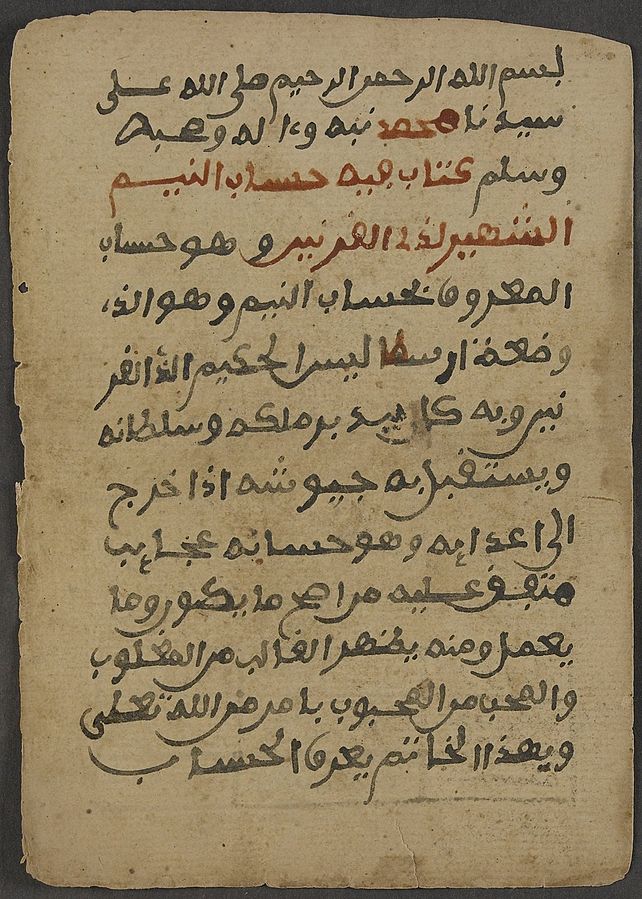 بسم الله الرحمن الرحيم صلى الله على
سيدنا محمد نبيه واله وصحبه
وسلم كتاب فيه حساب النيم
الشهير لذي القرنين وهو حساب
المعروف بحساب النيم وهو الذي
وضعه ارسطاليس الحكيم القر
نين وبه كان يدبر ملكه وسلطانه
ويستقبل به جيوشه اذا خرج
الى اعدايه وهو حساب عجايب
متفق عليه من اهم ما يكون وما
يعمل ومنه يظهر الغالب من المغلوب
والمحب من المحبوب بامر من الله تعلى
وبهذا الخاتم يعرف الحساب